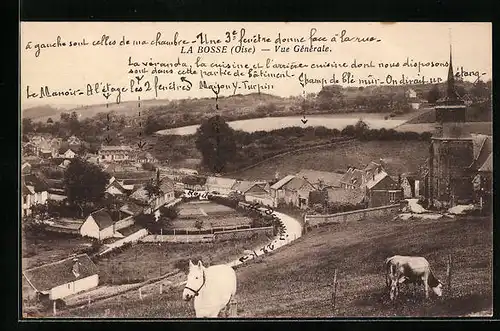 à gauche sont celles de ma chambre - Une 3e fenêtre donne face à la rue -
LA BOSSE (Oise) — Vue Générale.
La véranda, la cuisine et l'arrière-cuisine dont nous disposons
sont dans cette partie de bâtiment -
Le Manoir - A l'étage les 2 fenêtres
Maison Y. Turpin
Champ de Blé mûr - On dirait un étang